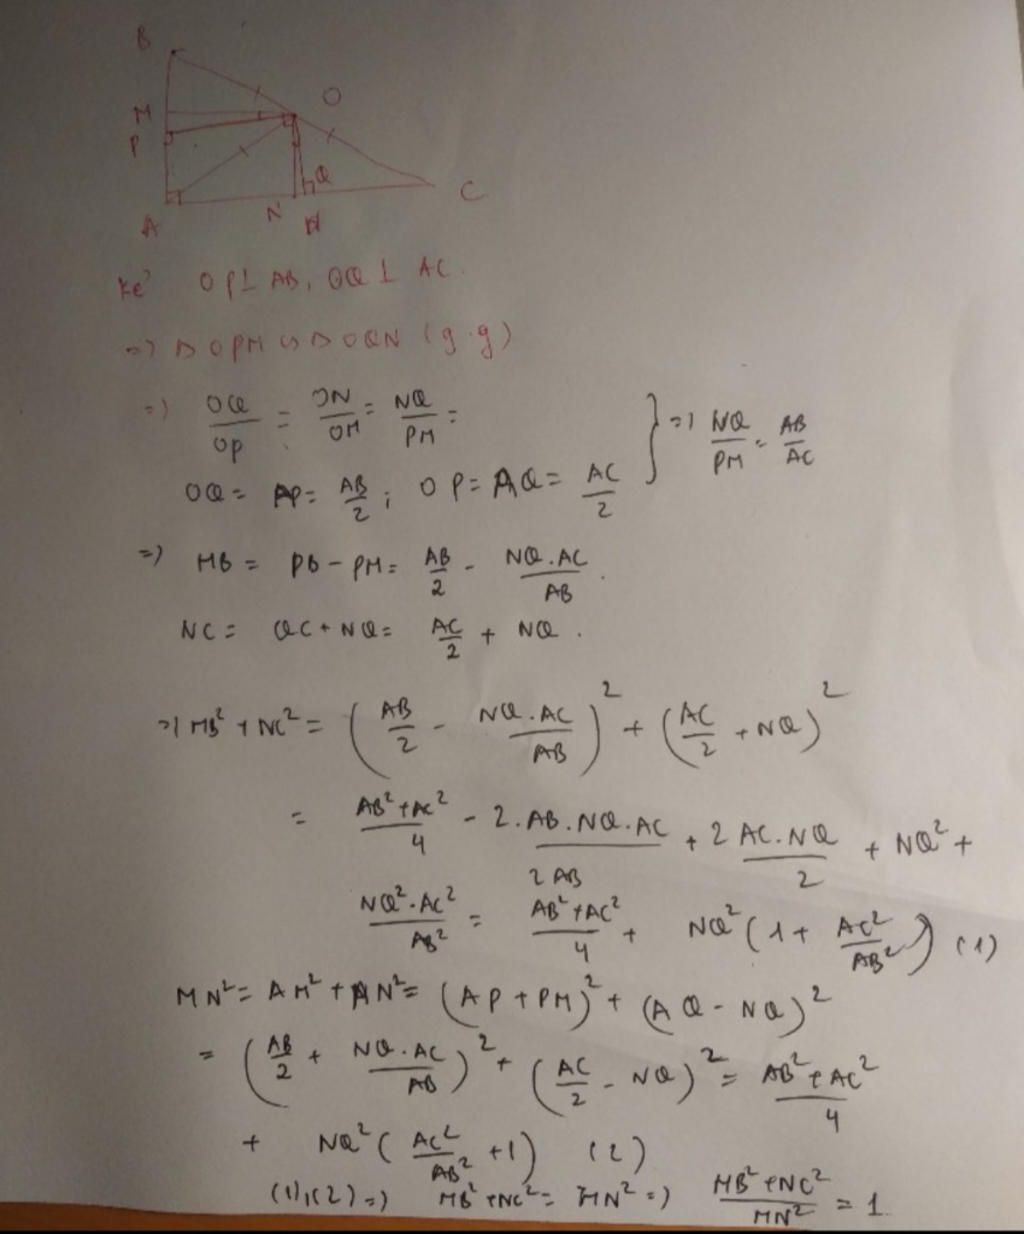 B
O
M
P
Q
C
A
N
H
Kẻ OP⊥ AB, OQ ⊥ AC.
=> Δ OPM ∽ Δ OQN (g.g)
=> OQ/OP = ON/OM = NQ/PM =
} => NQ/PM = AB/AC
OQ = AP = AB/2 ; OP = AQ = AC/2
=> MB = PB - PM = AB/2 - NQ.AC/AB.
NC = QC + NQ = AC/2 + NQ.
=> MB² + NC² = (AB/2 - NQ.AC/AB)² + (AC/2 + NQ)²
= AB²+AC²/4 - 2.AB.NQ.AC/2AB + 2 AC.NQ/2 + NQ² +
NQ².AC²/AB² = AB²+AC²/4 + NQ² (1 + AC²/AB²) (1)
MN² = AM² + AN² = (AP + PM)² + (AQ - NQ)²
= (AB/2 + NQ.AC/AB)² + (AC/2 - NQ)² = AB²+AC²/4
+ NQ² (AC²/AB² +1) (2)
(1),(2) => MB² +NC² = MN² => MB²+NC²/MN² = 1